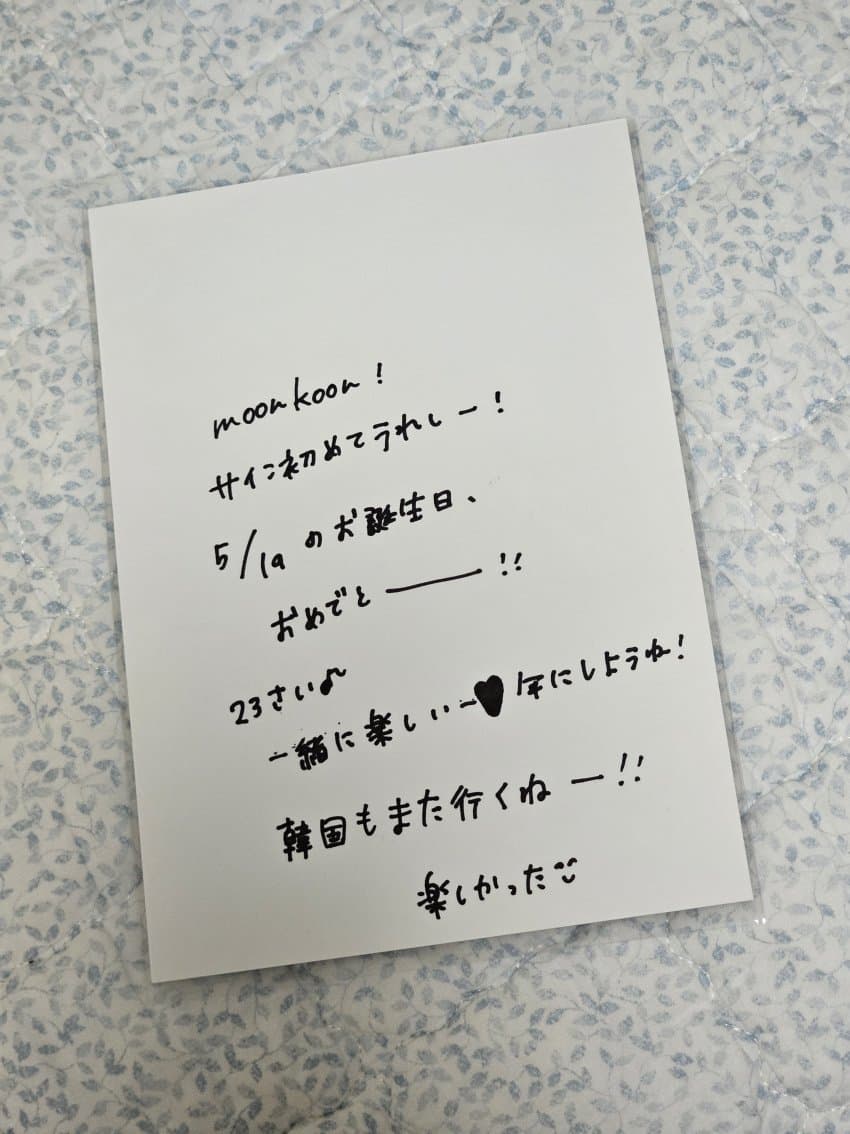 moonkoon!
サイン初めてうれしー!
5/19のお誕生日、
おめでとー!!
23さい♪
一緒に楽しいー♥年にしようね!
韓国もまた行くねー!!
楽しかった